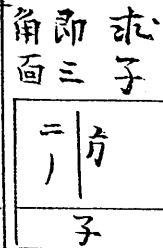 求子
即三
角面
二丿
方
子